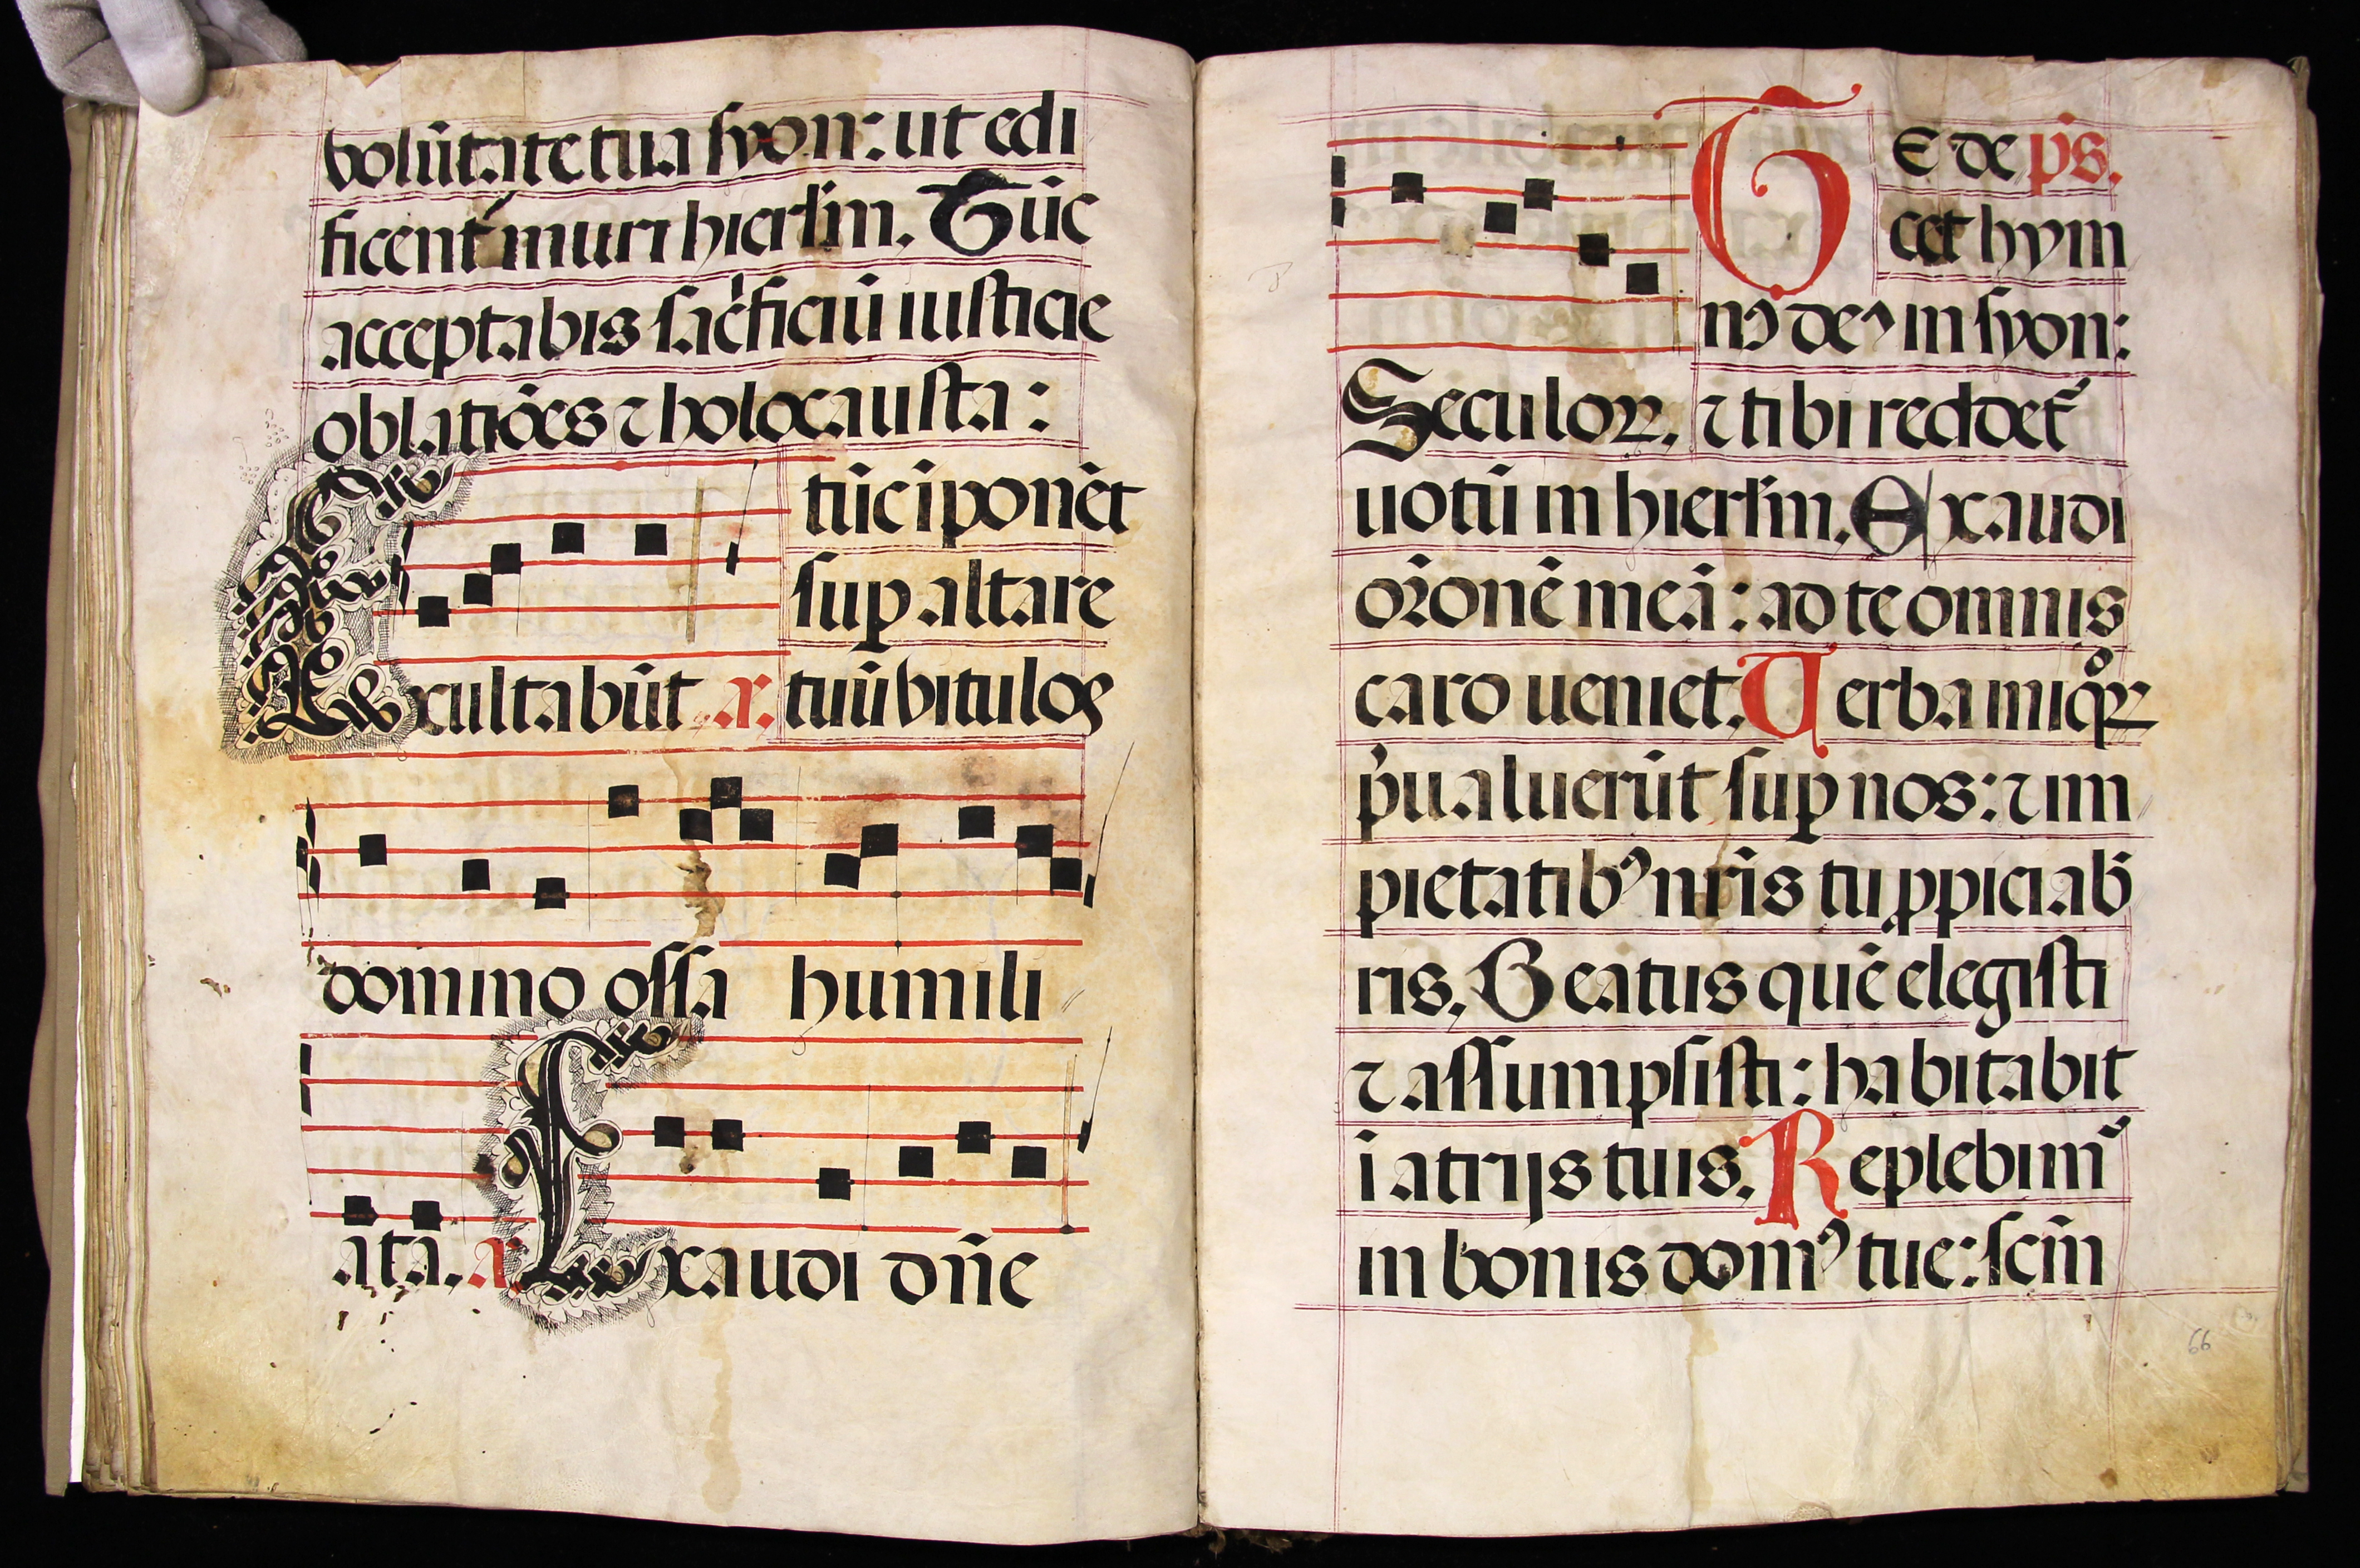 volūtate tua syon: ut edi
ficent᷑ muri hierl̄m. Tūc
acceptabis sac̍ficiū iusticie
oblatiōes ⁊ holocausta:
tūc īponēt
sup̱ altare
Exultabūt .x. tuū vitulos
domino ossa humili
ata. x. Exaudi dn̄e
TE de ps̄.
cet hym
nꝰ deꝰ in syon:
Seculoꝝ. ⁊ tibi reddet᷑
uotū in hierl̄m. Exaudi
or̄onē meā: ad te omnis
caro ueniet. Uerba miqͦꝝ
p̄ualuerūt sup̱ nos: ⁊ im
pietatibꝰ nr̄is tu ꝓpiciab̄
ris. Beatus quē elegisti
⁊ assumpsisti: habitabit
ī atrijs tuis. Replebim᷒
in bonis domꝰ tue: scm̄
66